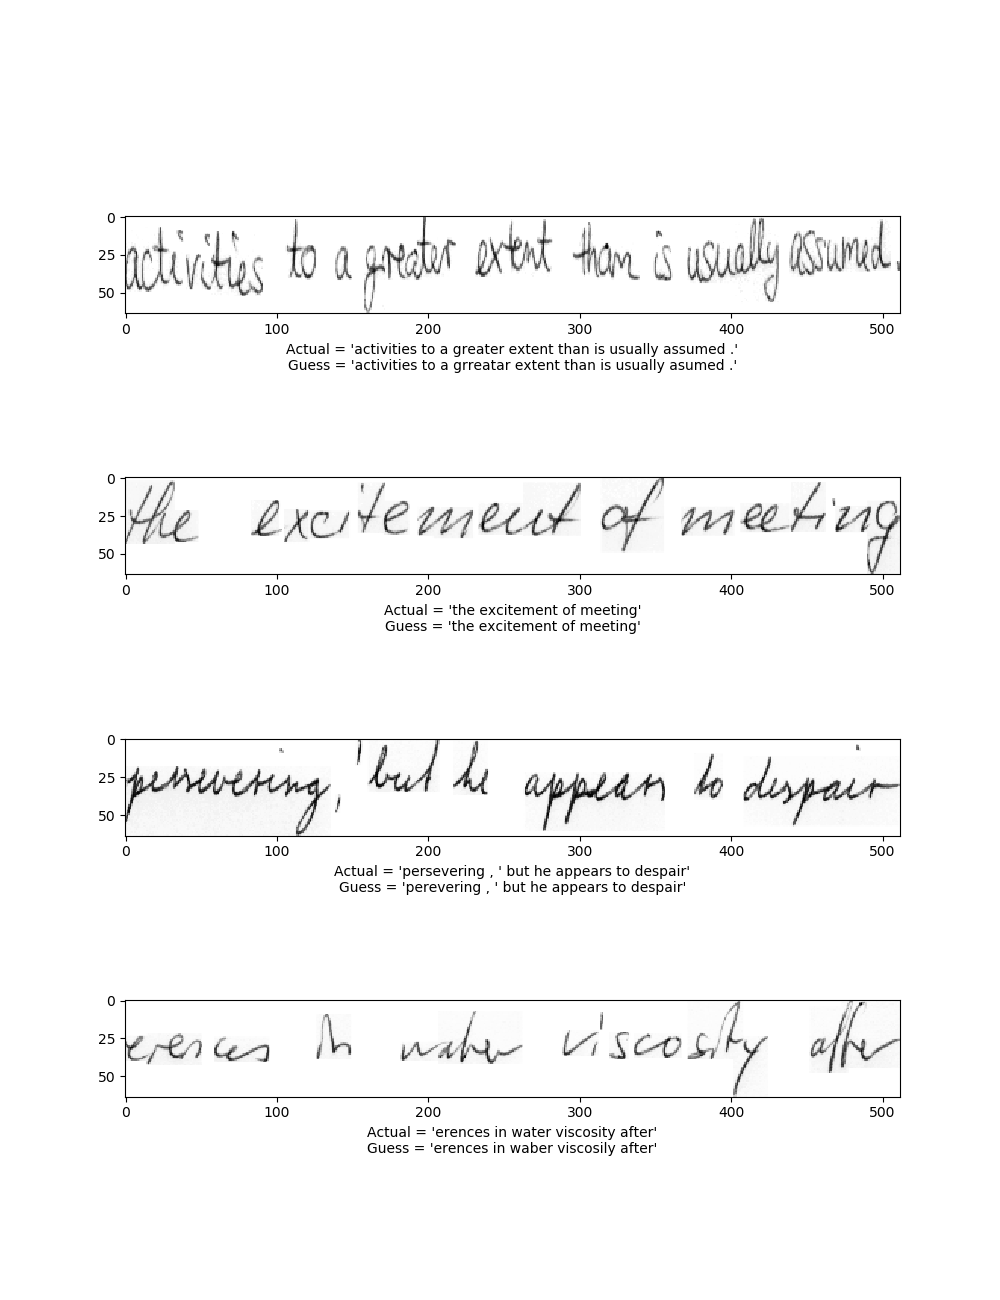 activities to a greater extent than is usually assumed.
0
25
50
0 100 200 300 400 500
Actual = 'activities to a greater extent than is usually assumed .'
Guess = 'activities to a grreatar extent than is usually asumed .'
the excitement of meeting
0
25
50
0 100 200 300 400 500
Actual = 'the excitement of meeting'
Guess = 'the excitement of meeting'
persevering, ' but he appears to despair
0
25
50
0 100 200 300 400 500
Actual = 'persevering , ' but he appears to despair'
Guess = 'perevering , ' but he appears to despair'
erences in water viscosity after
0
25
50
0 100 200 300 400 500
Actual = 'erences in water viscosity after'
Guess = 'erences in waber viscosily after'